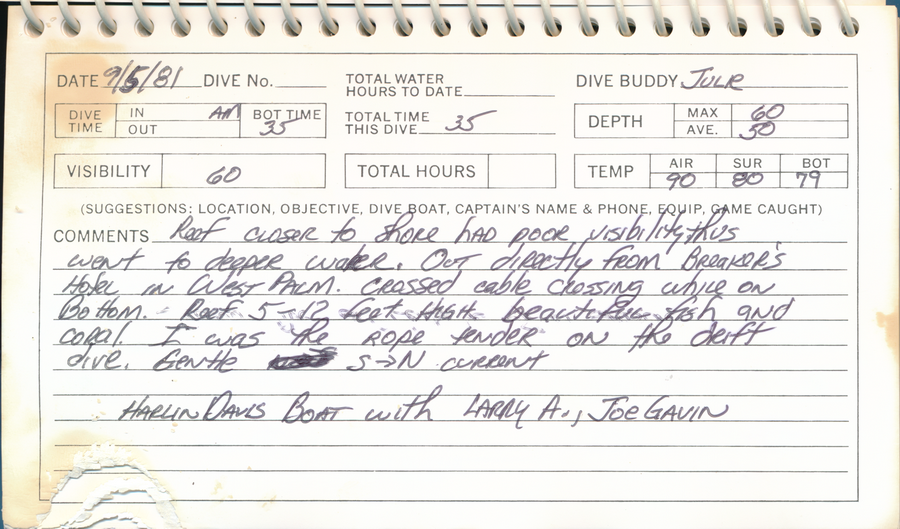 DATE 9/5/81 DIVE No. TOTAL WATER HOURS TO DATE DIVE BUDDY JULIE
DIVE TIME IN AM OUT BOT TIME 35 TOTAL TIME THIS DIVE 35 DEPTH MAX 60 AVE. 50
VISIBILITY 60 TOTAL HOURS TEMP AIR 90 SUR 80 BOT 79
(SUGGESTIONS: LOCATION, OBJECTIVE, DIVE BOAT, CAPTAIN'S NAME & PHONE, EQUIP, GAME CAUGHT)
COMMENTS Reef closer to shore had poor visibility, thus
went to deeper water. Out directly from Breaker's
Hotel in West Palm. Crossed cable crossing while on
Bottom. Reef 5-12 feet High beautiful fish and
coral. I was the rope tender on the drift
dive. Gentle S→N current
HARLIN DAVIS BOAT with LARRY A., JOE GAVIN